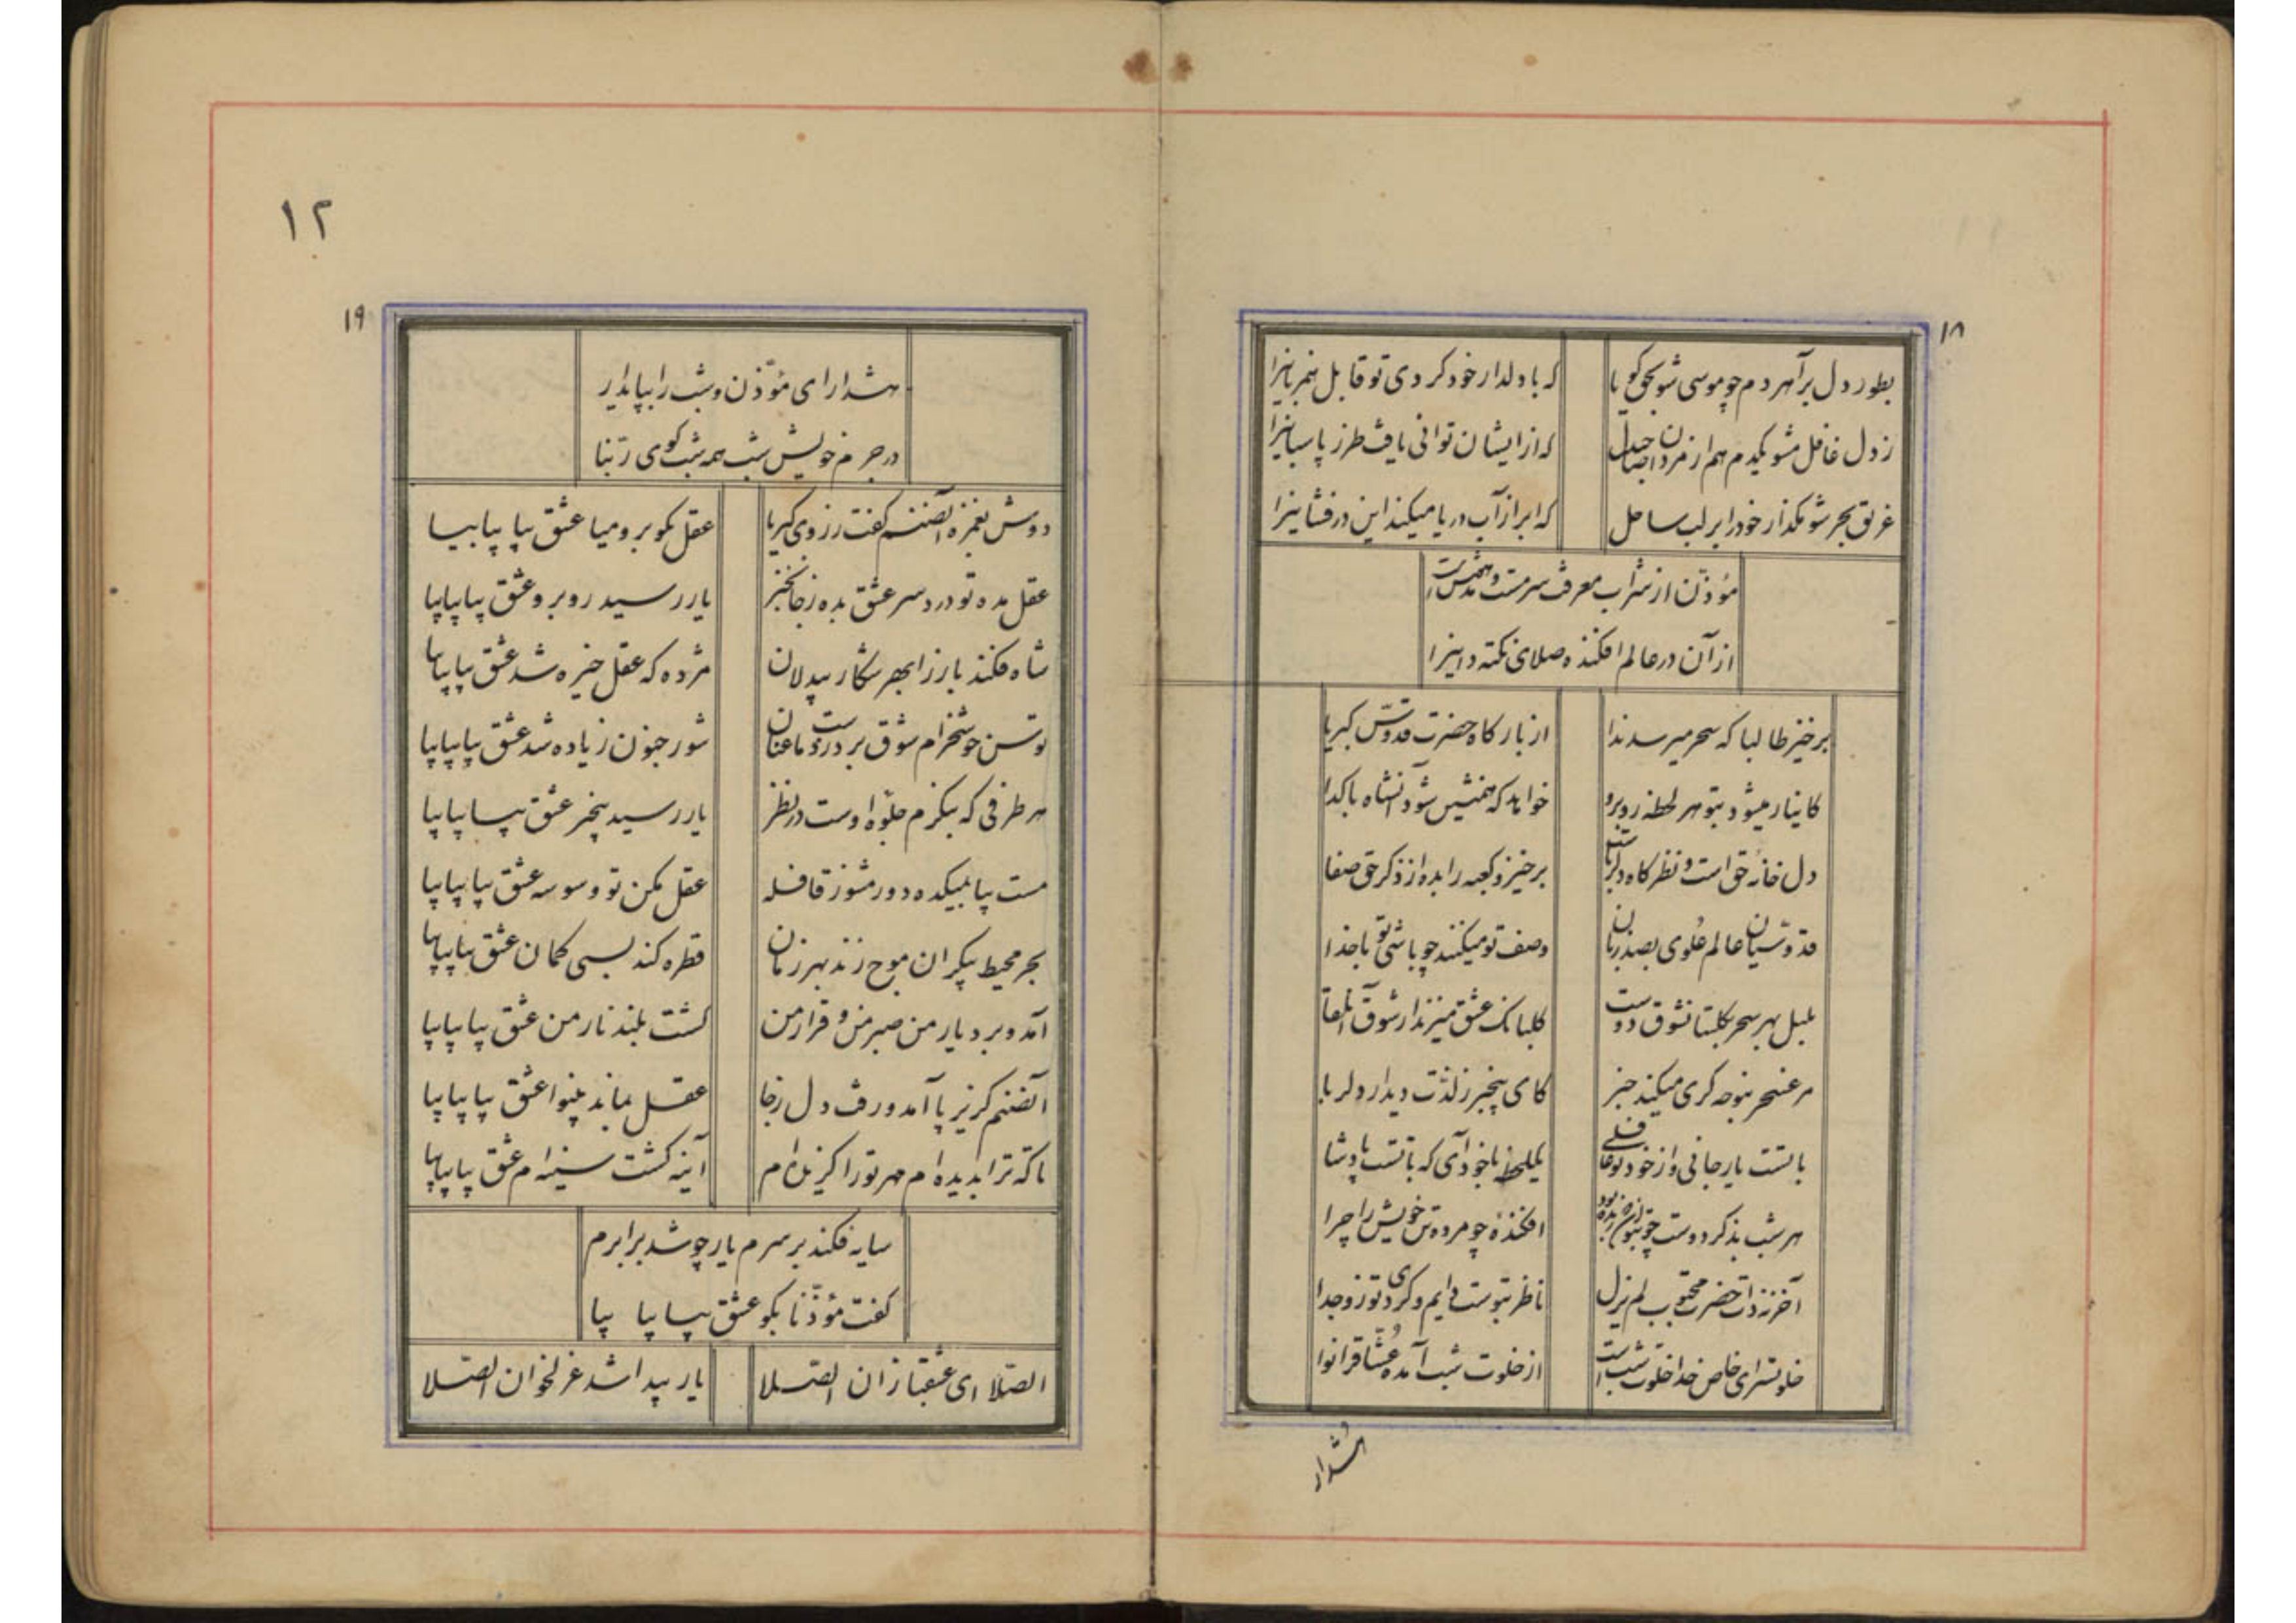 ۱۸
بطور دل برآ هر دم چو موسی شو بحق کویا
که با دلدار خود کردی تو قابل همزبانیرا
ز دل غافل مشو یکدم هم از مردان صاحبدل
که از ایشان توانی یافت طرز پاسبانیرا
غریق بحر شو مکذار خود را بر لب ساحل
که ابر از آب دریا میکند این درفشانیرا
مؤذن از شراب معرفت سرمست و مدهش است
از آن در عالم افکنده صلای نکته دانیرا
برخیز طالبا که سحر میرسد ندا
از بارکاه حضرت قدوس کبریا
کاینار میشود بتو هر لحظه روبرو
خواهد که همنشین شود آنشاه با کدا
دل خانه حق است و نظرکاه دلبر
برخیز و کعبه را بده از ذکر حق صفا
قدوسیان عالم علوی بصد زبان
وصف تو میکنند چو باشی تو با خدا
بلبل بهر سحر بکلستان شوق دوست
کلبانک عشق میزند از شوق آن لقا
مرغ سحر بنوحه کری میکند خبر
کای بیخبر ز لذت دیدار دلربا
با تست یار جانی و از خود تو غافلی
یکلحظه باخود آی که با تست پادشا
هر شب بذکر دوست چو بتوان زنده بود
افکنده چو مرده تن خویش را چرا
آخر ز ذات حضرت محبوب لم یزل
ناظر بتوست دایم و کردی تو زو جدا
خلوتسرای خاص خدا خلوت شب است
از خلوت شب آمده عشاق را نوا
هشدار
۱۲
۱۹
هشدار ای مؤذن و شب را بپایدار
در جرم خویش شب همه شب کوی ربنا
دوش بغمزه آنصنم کفت ز روی کبریا
عقل بکو برو میا عشق بیا بیا بیا
عقل مده تو دردسر عشق بده ز جا نخیز
یار رسید روبرو عشق بیا بیا بیا
شاه فکند باز را بهر شکار بیدلان
مژده که عقل خیره شد عشق بیا بیا بیا
توسن خوشخرام شوق برد ز دست ما عنان
شور جنون زیاده شد عشق بیا بیا بیا
هر طرفی که بنکرم جلوه اوست در نظر
یار رسید بیخبر عشق بیا بیا بیا
مست بیا بمیکده دور مشو ز قافله
عقل مکن تو وسوسه عشق بیا بیا بیا
بحر محیط بیکران موج زند بهر زمان
قطره کند بسی کمان عشق بیا بیا بیا
آمد و برد یار من صبر من و قرار من
کشت بلند نار من عشق بیا بیا بیا
آنصنم کریز پا آمد و رفت دل ز جا
عقل بماند بینوا عشق بیا بیا بیا
تا که ترا بدیده ام مهر تو را کزیده ام
آینه کشت سینه ام عشق بیا بیا بیا
سایه فکند بر سرم یار چو شد برابرم
کفت مؤذنا بکو عشق بیا بیا بیا
الصلا ای عشقبازان الصلا
یار پیدا شد غزلخوان الصلا